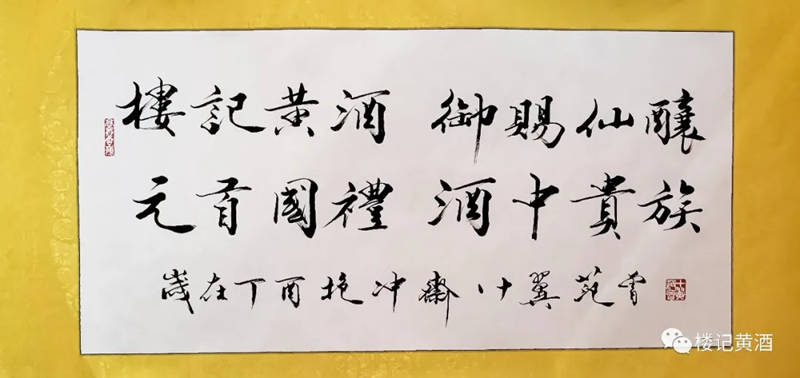 樓記黄酒 御賜仙釀
元首國禮 酒中貴族
歲在丁酉抱冲齋十翼范
楼记黄酒